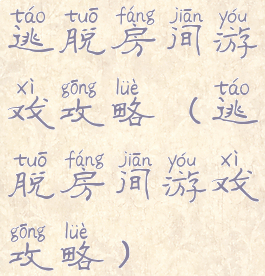 táo tuō fáng jiān yóu
逃脱房间游
xì gōng lüè táo
戏攻略（逃
tuō fáng jiān yóu xì
脱房间游戏
gōng lüè
攻略）